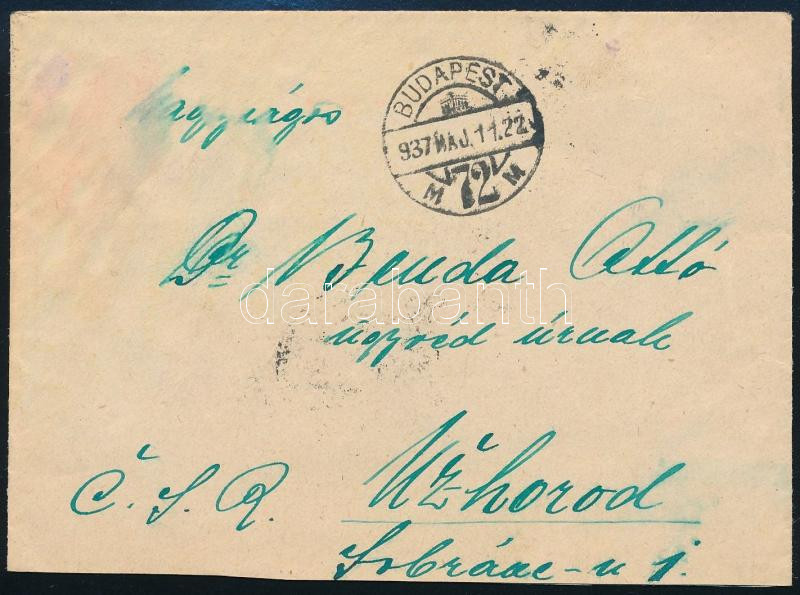 BUDAPEST
937 MÁJ. 11. 22
M 72 M
Dr Benda Ottó
ügyvéd úrnak
Č. S. R. Užhorod
darabanth